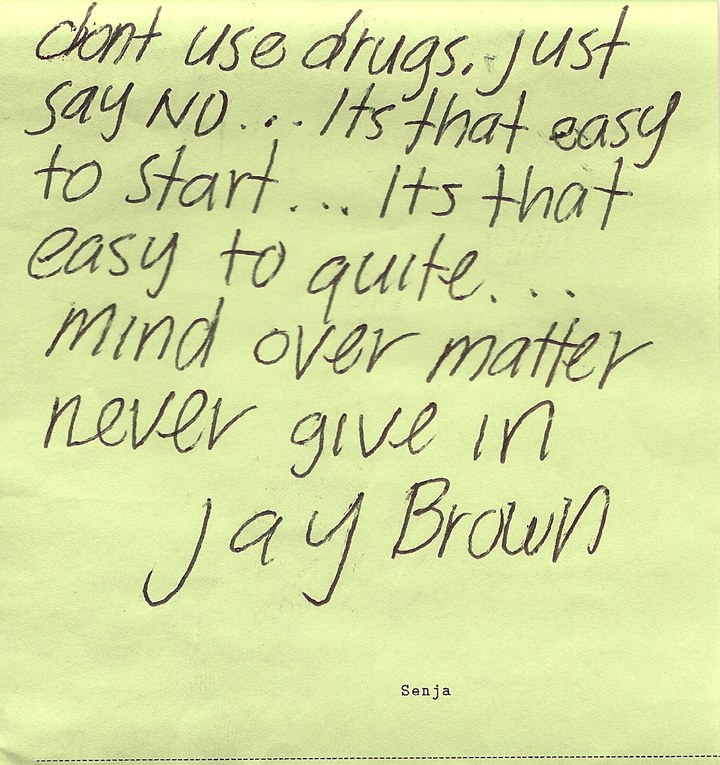 dont use drugs. Just
say NO... Its that easy
to start... Its that
easy to quite...
mind over matter
never give in
Jay Brown
Senja